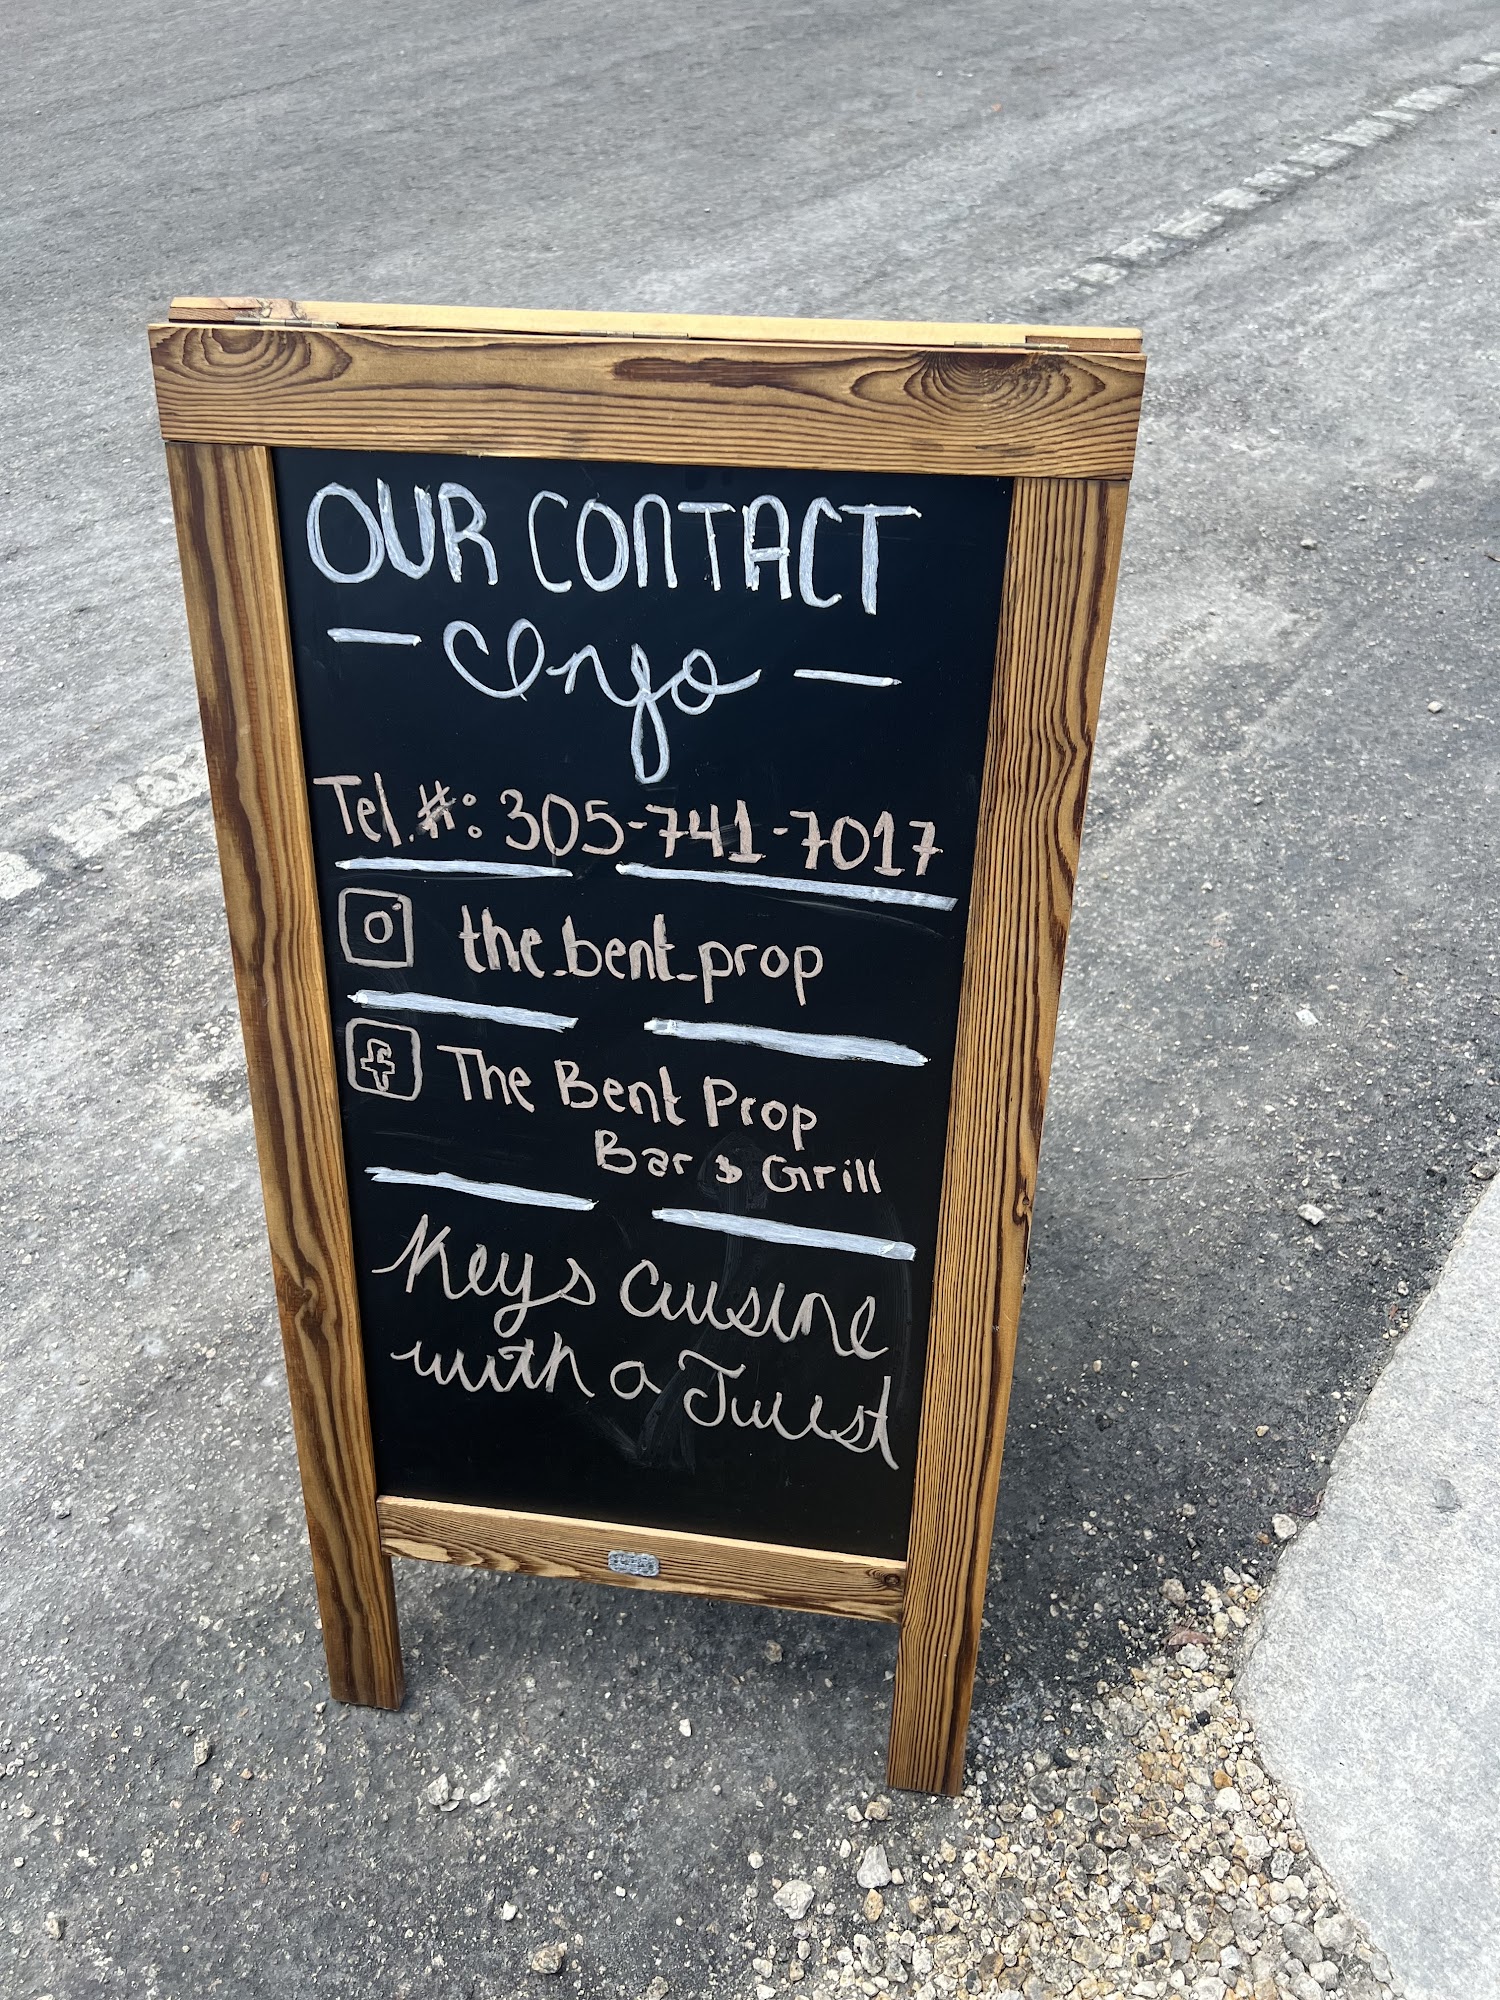 OUR CONTACT
- Info -
Tel.#: 305-741-7017
the_bent_prop
The Bent Prop
Bar & Grill
Keys Cuisine
with a Twist